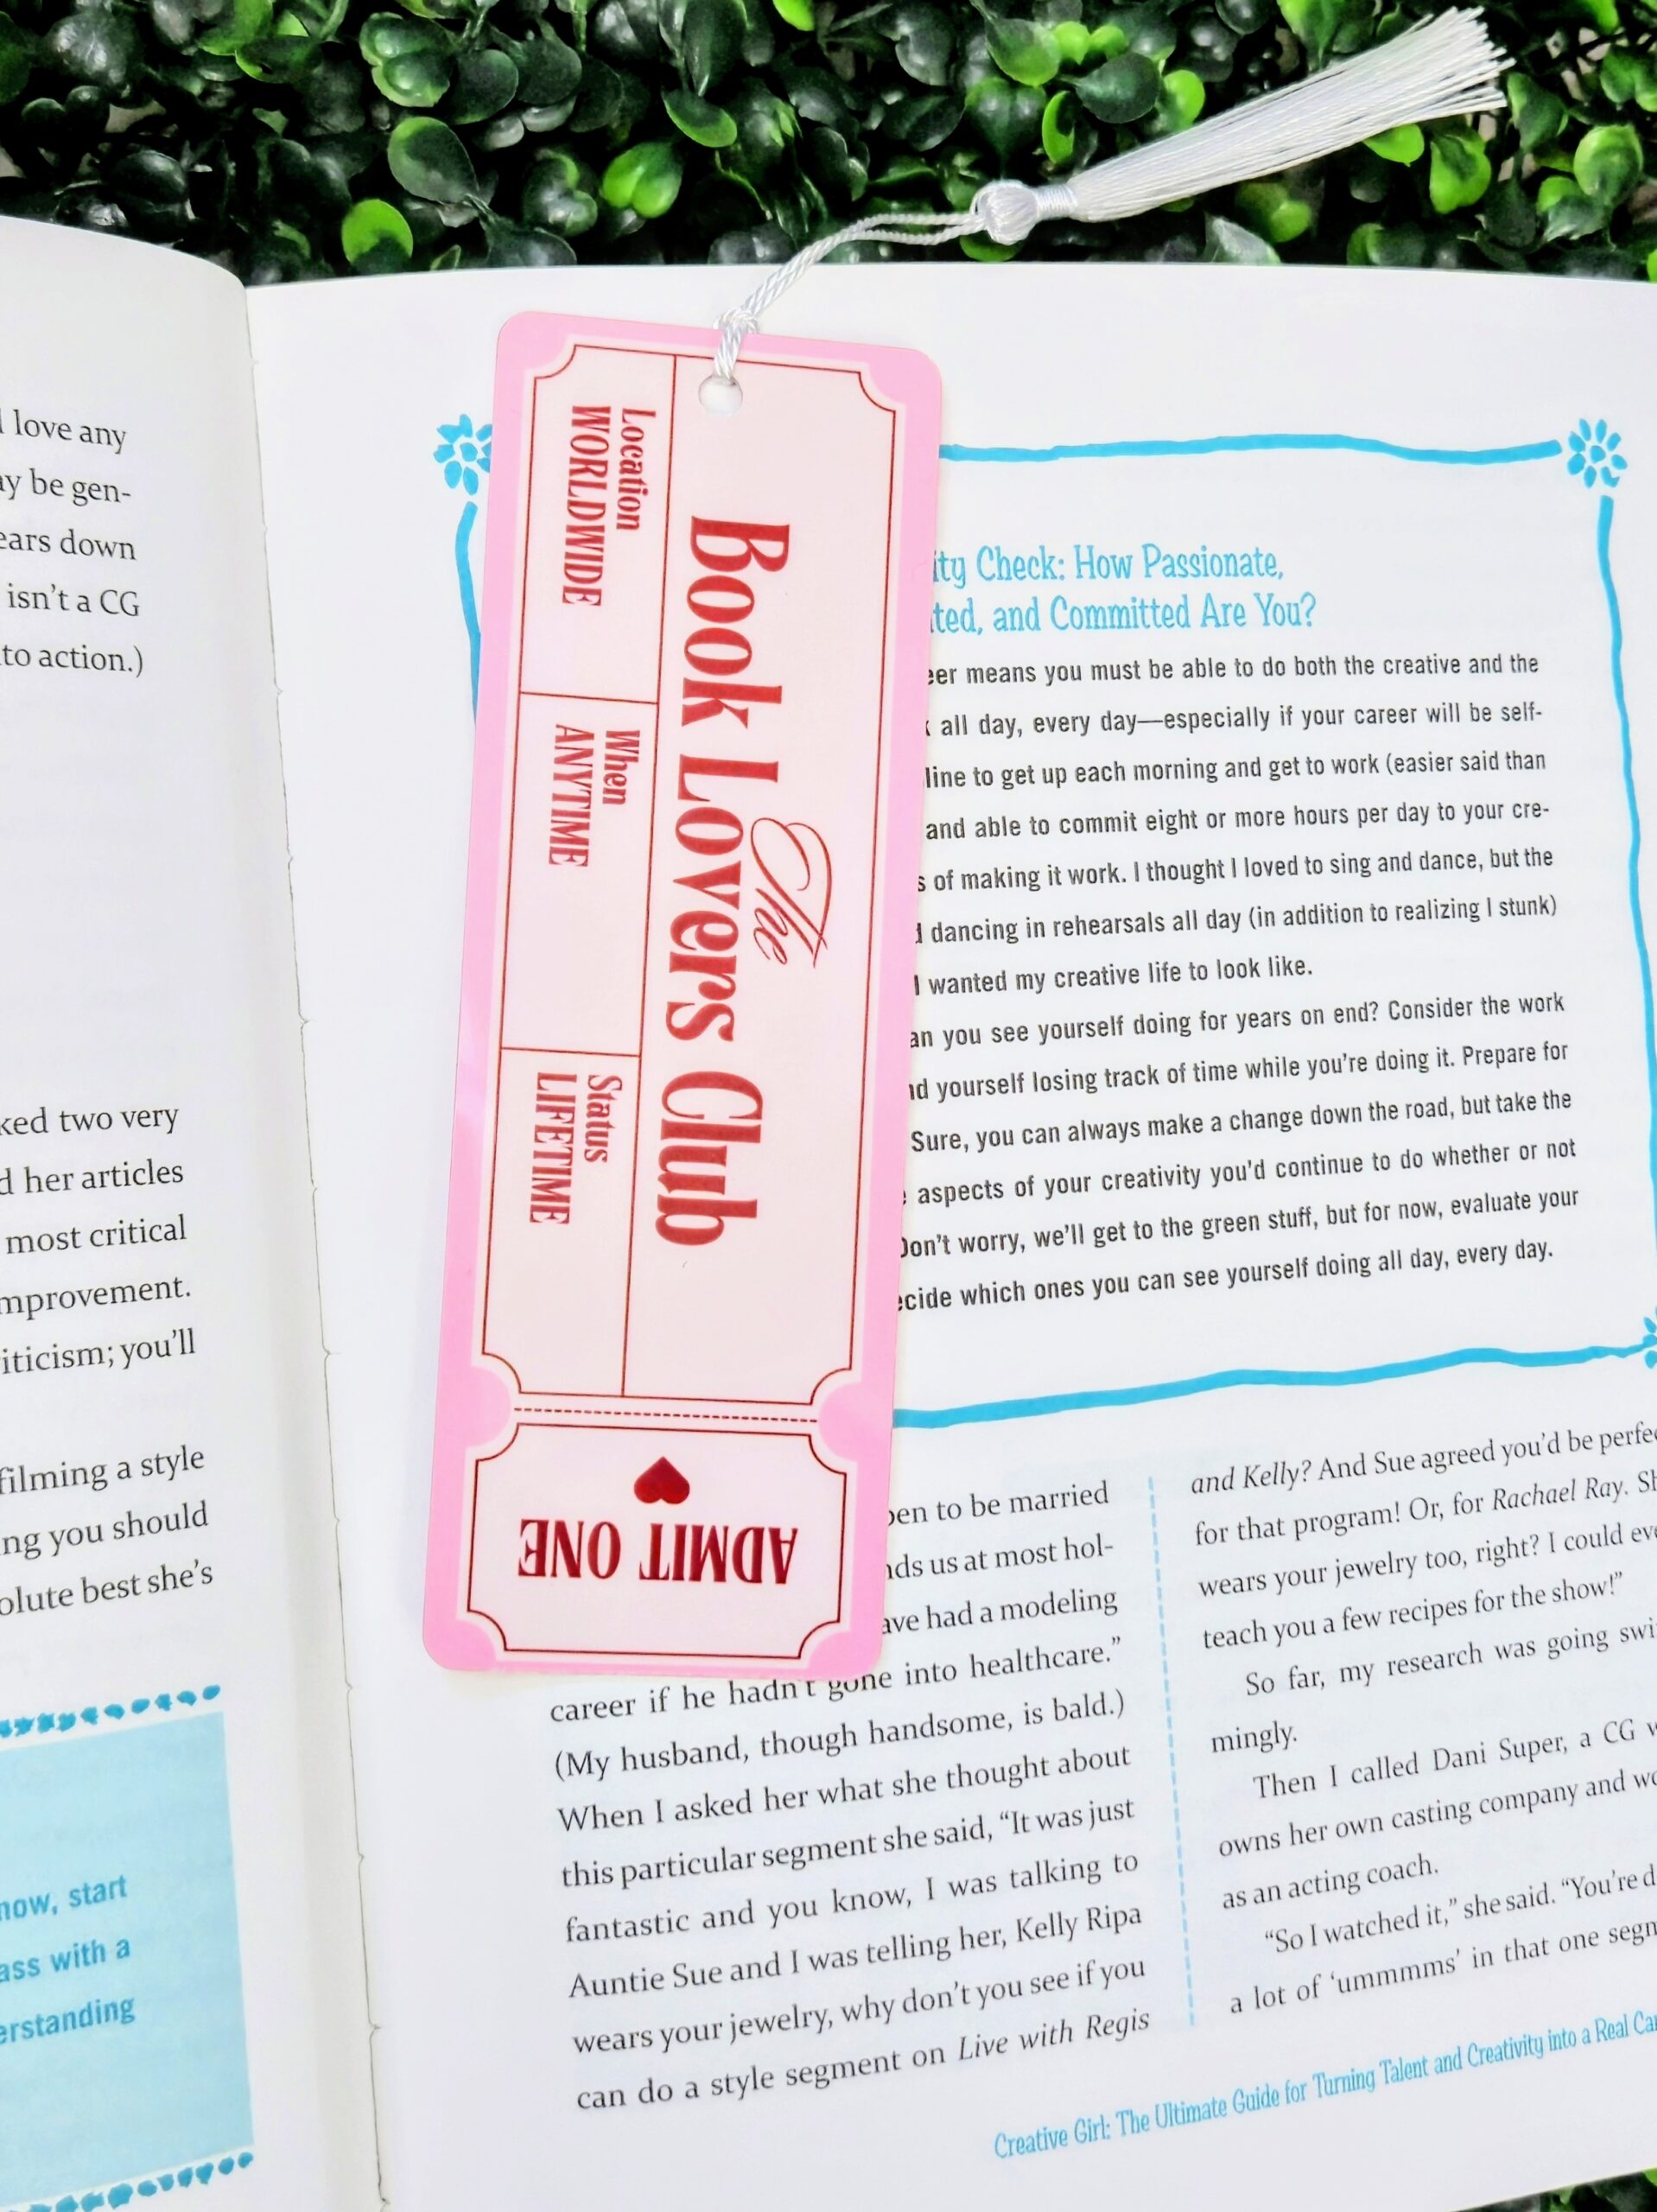 love any
be gen-
down
isn't a CG
to action.)
two very
her articles
most critical
you'll
filming a style
you should
best she's
now, start
with a
The
Book Lovers Club
Location
WORLDWIDE
When
ANYTIME
Status
LIFETIME
ADMIT ONE
Check: How Passionate,
and Committed Are You?
means you must be able to do both the creative and the
all day, every day—especially if your career will be self-
line to get up each morning and get to work (easier said than
and able to commit eight or more hours per day to your cre-
of making it work. I thought I loved to sing and dance, but the
dancing in rehearsals all day (in addition to realizing I stunk)
I wanted my creative life to look like.
you see yourself doing for years on end? Consider the work
yourself losing track of time while you're doing it. Prepare for
Sure, you can always make a change down the road, but take the
aspects of your creativity you'd continue to do whether or not
Don't worry, we'll get to the green stuff, but for now, evaluate your
which ones you can see yourself doing all day, every day.
to be married
us at most hol-
had a modeling
career if he hadn't gone into healthcare."
(My husband, though handsome, is bald.)
When I asked her what she thought about
this particular segment she said, "It was just
fantastic and you know, I was talking to
Auntie Sue and I was telling her, Kelly Ripa
wears your jewelry, why don't you see if you
can do a style segment on Live with Regis
and Kelly? And Sue agreed you'd be
for that program! Or, for Rachael Ray.
wears your jewelry too, right? I could
teach you a few recipes for the show!"
So far, my research was going
mingly.
Then I called Dani Super, a CG
owns her own casting company and
as an acting coach.
"So I watched it," she said. "You're
a lot of 'ummmms' in that one
Creative Girl: The Ultimate Guide for Turning Talent and Creativity into a Real